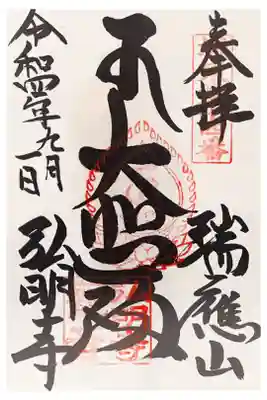 奉拝
瑞應山
大悲殿
令和四年九月
一日
弘明寺